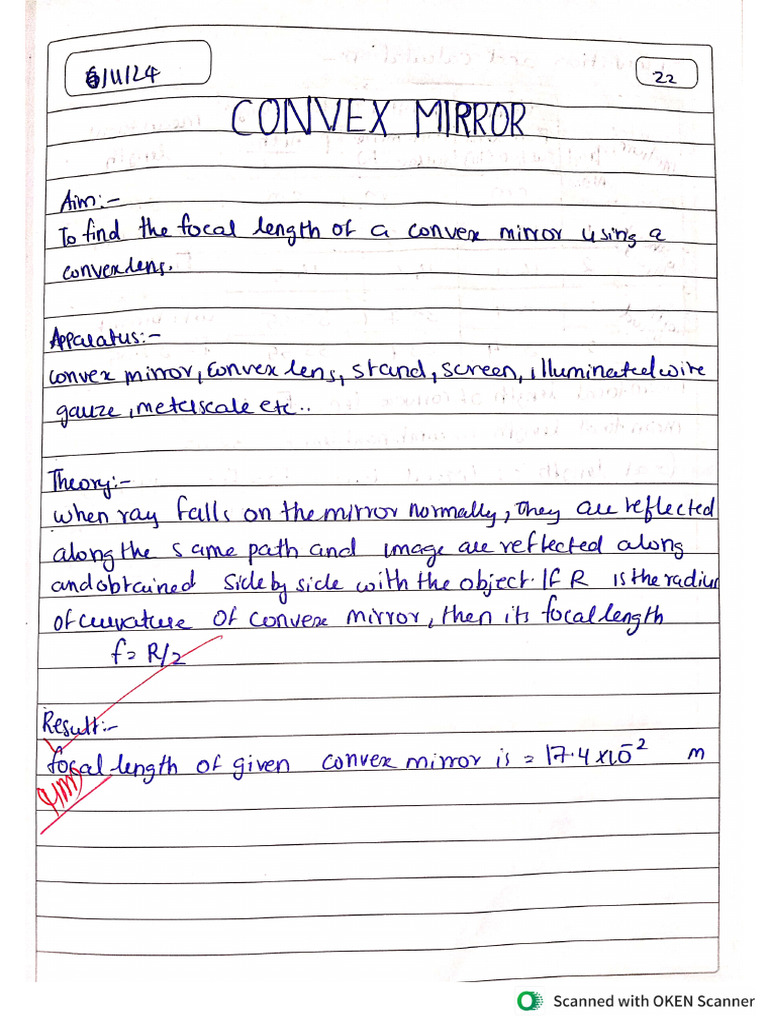 6/11/24
22
CONVEX MIRROR
Aim:-
To find the focal length of a convex mirror using a
convex lens.
Apparatus:-
convex mirror, convex lens, stand, screen, illuminated wire
gauze, meter scale etc..
Theory:-
when ray falls on the mirror normally, they are reflected
along the same path and image are reflected along
and obtained side by side with the object. If R is the radius
of curvature of convex mirror, then its focal length
f = R/2
Result:-
focal length of given convex mirror is = 17.4 x 10⁻² m
Scanned with OKEN Scanner